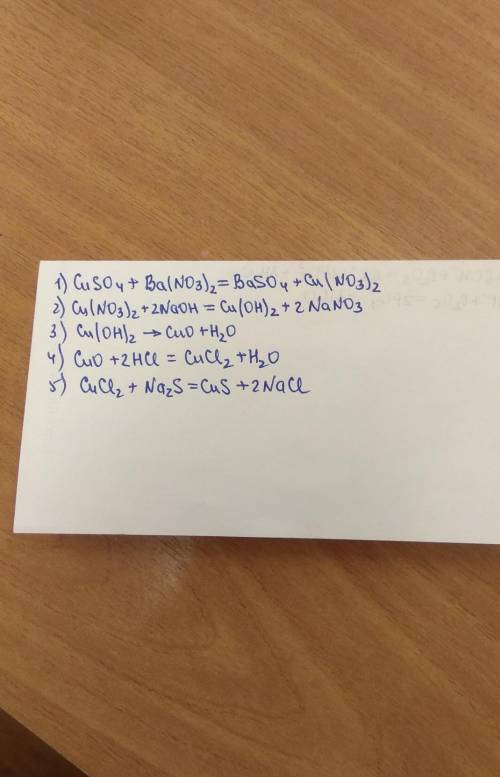 1) CuSO4 + Ba(NO3)2 = BaSO4 + Cu(NO3)2
2) Cu(NO3)2 + 2NaOH = Cu(OH)2 + 2NaNO3
3) Cu(OH)2 → CuO + H2O
4) CuO + 2HCl = CuCl2 + H2O
5) CuCl2 + Na2S = CuS + 2NaCl